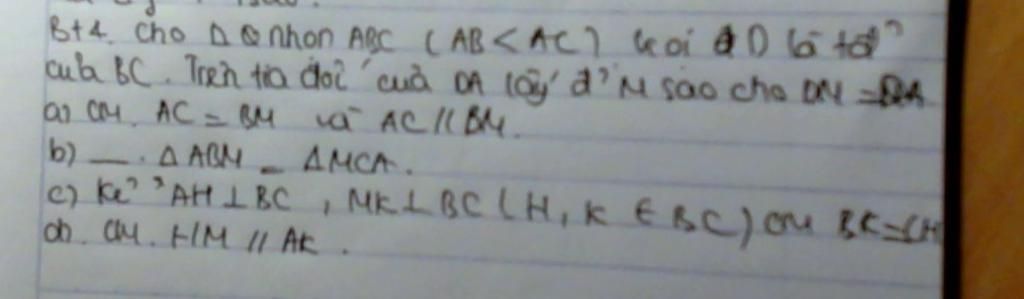 Bt4. Cho Δ nhọn ABC (AB < AC) Gọi D là tđ
của BC. Trên tia đối của DA lấy đ' M sao cho DM = DA
a) CM. AC = BM và AC // BM.
b) __ . Δ ABM = Δ MCA.
c) Kẻ AH ⊥ BC , MK ⊥ BC (H, K ∈ BC) CM BK = CH
d). CM. HM // AK .